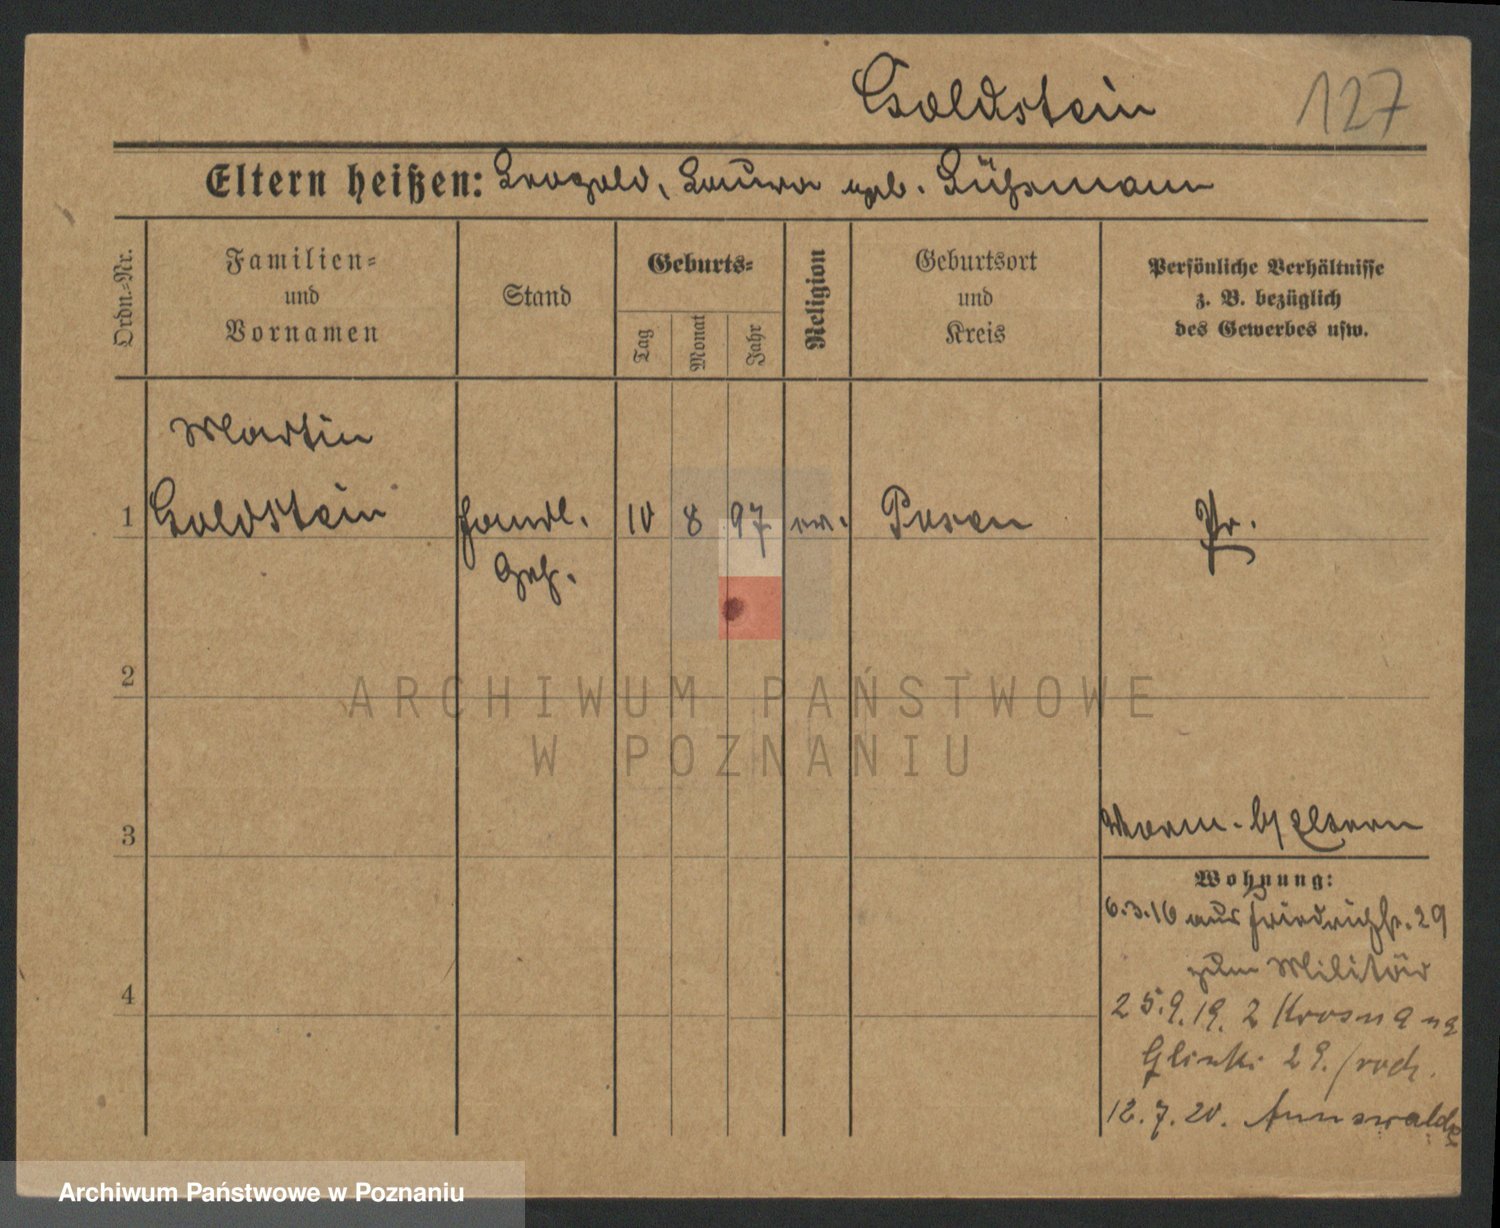 Goldstein 127
Eltern heißen: Leopold, Laura geb. Lührmann
Ordn.-Nr.
Familien-
und
Vornamen
Stand
Geburts-
Tag
Monat
Jahr
Religion
Geburtsort
und
Kreis
Persönliche Verhältnisse
z. B. bezüglich
des Gewerbes usw.
Martin
1 Goldstein Handl. 10 8 97 Posen Pr.
Geh.
2
ARCHIWUM PAŃSTWOWE
W POZNANIU
3
Eltern
Wohnung:
6.3.16 aus Friedrichstr. 29
zum Militär
4
25.9.19. z Krosna na
Glinki 29. /rodz.
12.7.20. Arnswalde
Archiwum Państwowe w Poznaniu